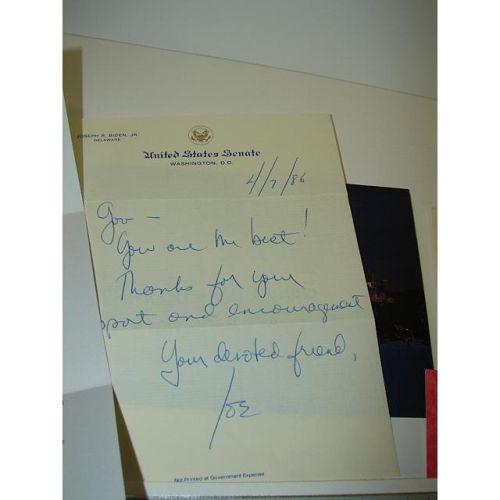 JOSEPH R. BIDEN, JR.
DELAWARE
United States Senate
WASHINGTON, D.C.
4/7/86
Gov —
You are the best!
Thanks for your
pport and encouragement
Your devoted friend,
Joe
Not Printed at Government Expense